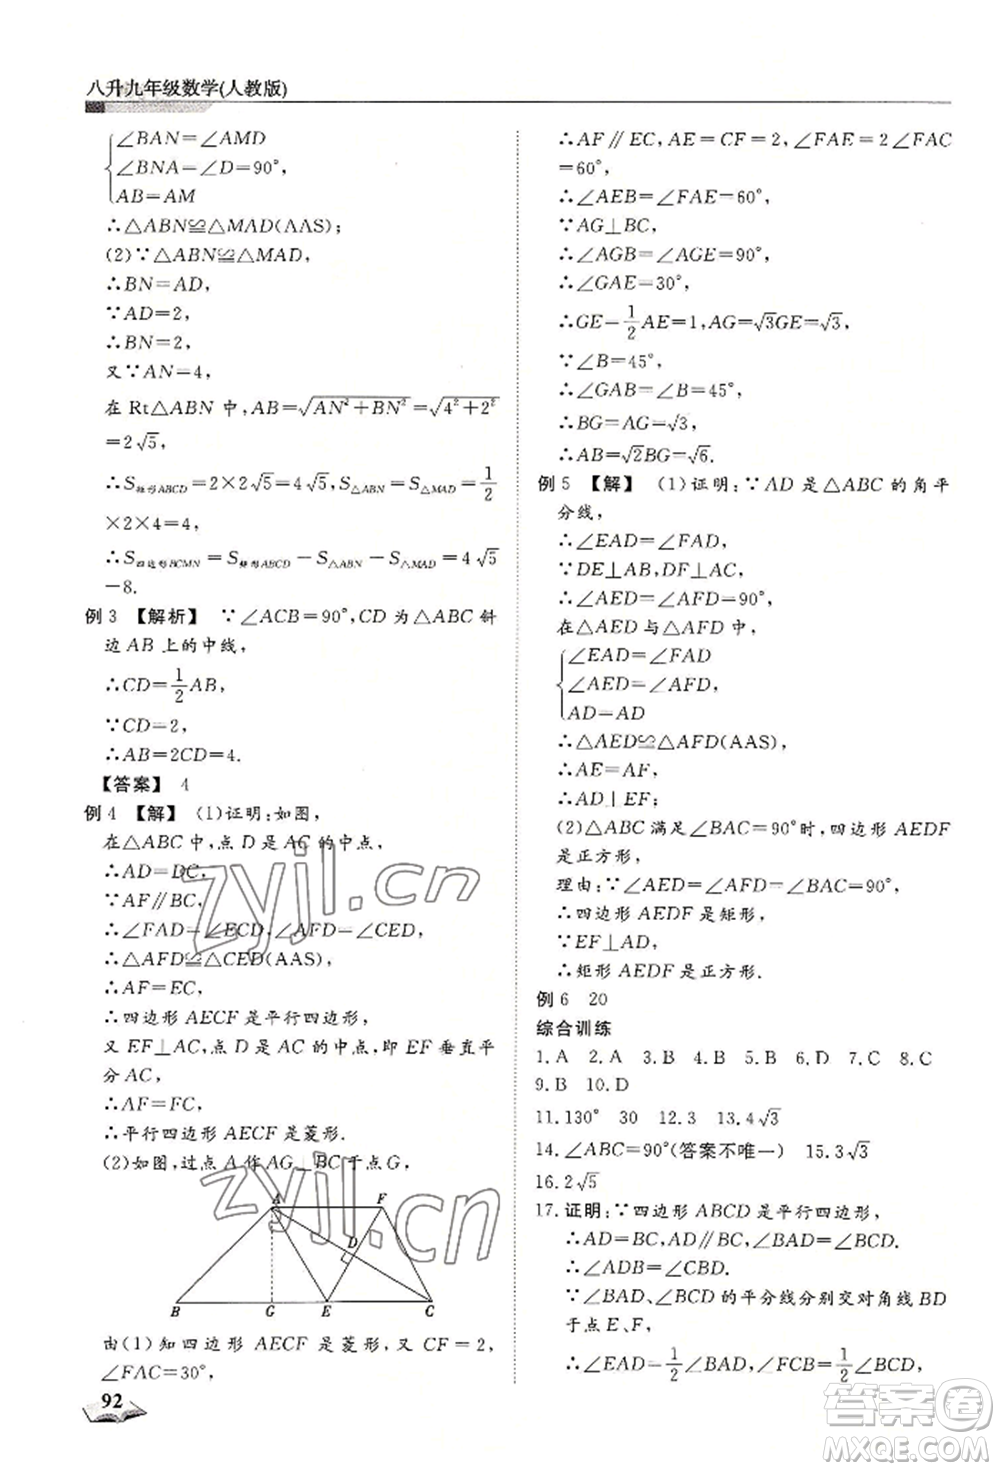 八升九年级数学(人教版)
∠BAN=∠AMD
∠BNA=∠D=90°,
AB=AM
∴△ABN≌△MAD(AAS);
(2)∵△ABN≌△MAD,
∴BN=AD,
∵AD=2,
∴BN=2,
又∵AN=4,
在 Rt△ABN 中,AB=√(AN²+BN²)=√(4²+2²)
=2√5,
∴S矩形ABCD=2×2√5=4√5,S△ABN=S△MAD=1/2
×2×4=4,
∴S四边形BCMN=S矩形ABCD-S△ABN-S△MAD=4√5
-8.
例 3 【解析】 ∵∠ACB=90°,CD 为△ABC 斜
边 AB 上的中线,
∴CD=1/2AB,
∵CD=2,
∴AB=2CD=4.
【答案】 4
例 4 【解】 (1)证明:如图,
在△ABC 中,点 D 是 AC 的中点,
∴AD=DC,
∵AF∥BC,
∴∠FAD=∠ECD,∠AFD=∠CED,
∴△AFD≌△CED(AAS),
∴AF=EC,
∴四边形 AECF 是平行四边形,
又 EF⊥AC,点 D 是 AC 的中点,即 EF 垂直平
分 AC,
∴AF=FC,
∴平行四边形 AECF 是菱形.
(2)如图,过点 A 作 AG⊥BC 于点 G,
A F
D
B G E C
由(1)知四边形 AECF 是菱形,又 CF=2,
∠FAC=30°,
92
∴AF∥EC,AE=CF=2,∠FAE=2∠FAC
=60°,
∴∠AEB=∠FAE=60°,
∵AG⊥BC,
∴∠AGB=∠AGE=90°,
∴∠GAE=30°,
∴GE=1/2AE=1,AG=√3GE=√3,
∵∠B=45°,
∴∠GAB=∠B=45°,
∴BG=AG=√3,
∴AB=√2BG=√6.
例 5 【解】 (1)证明:∵AD 是△ABC 的角平
分线,
∴∠EAD=∠FAD,
∵DE⊥AB,DF⊥AC,
∴∠AED=∠AFD=90°,
在△AED 与△AFD 中,
∠EAD=∠FAD
∠AED=∠AFD,
AD=AD
∴△AED≌△AFD(AAS),
∴AE=AF,
∴AD⊥EF;
(2)△ABC 满足∠BAC=90°时,四边形 AEDF
是正方形,
理由:∵∠AED=∠AFD=∠BAC=90°,
∴四边形 AEDF 是矩形,
∵EF⊥AD,
∴矩形 AEDF 是正方形.
例 6 20
综合训练
1.A 2.A 3.B 4.B 5.B 6.D 7.C 8.C
9.B 10.D
11.130° 30 12.3 13.4√3
14.∠ABC=90°(答案不唯一) 15.3√3
16.2√5
17.证明:∵四边形 ABCD 是平行四边形,
∴AD=BC,AD∥BC,∠BAD=∠BCD.
∴∠ADB=∠CBD.
∵∠BAD、∠BCD 的平分线分别交对角线 BD
于点 E、F,
∴∠EAD=1/2∠BAD,∠FCB=1/2∠BCD,
zyjl.cn
zyjl.cn
答案圈
MXQE.COM